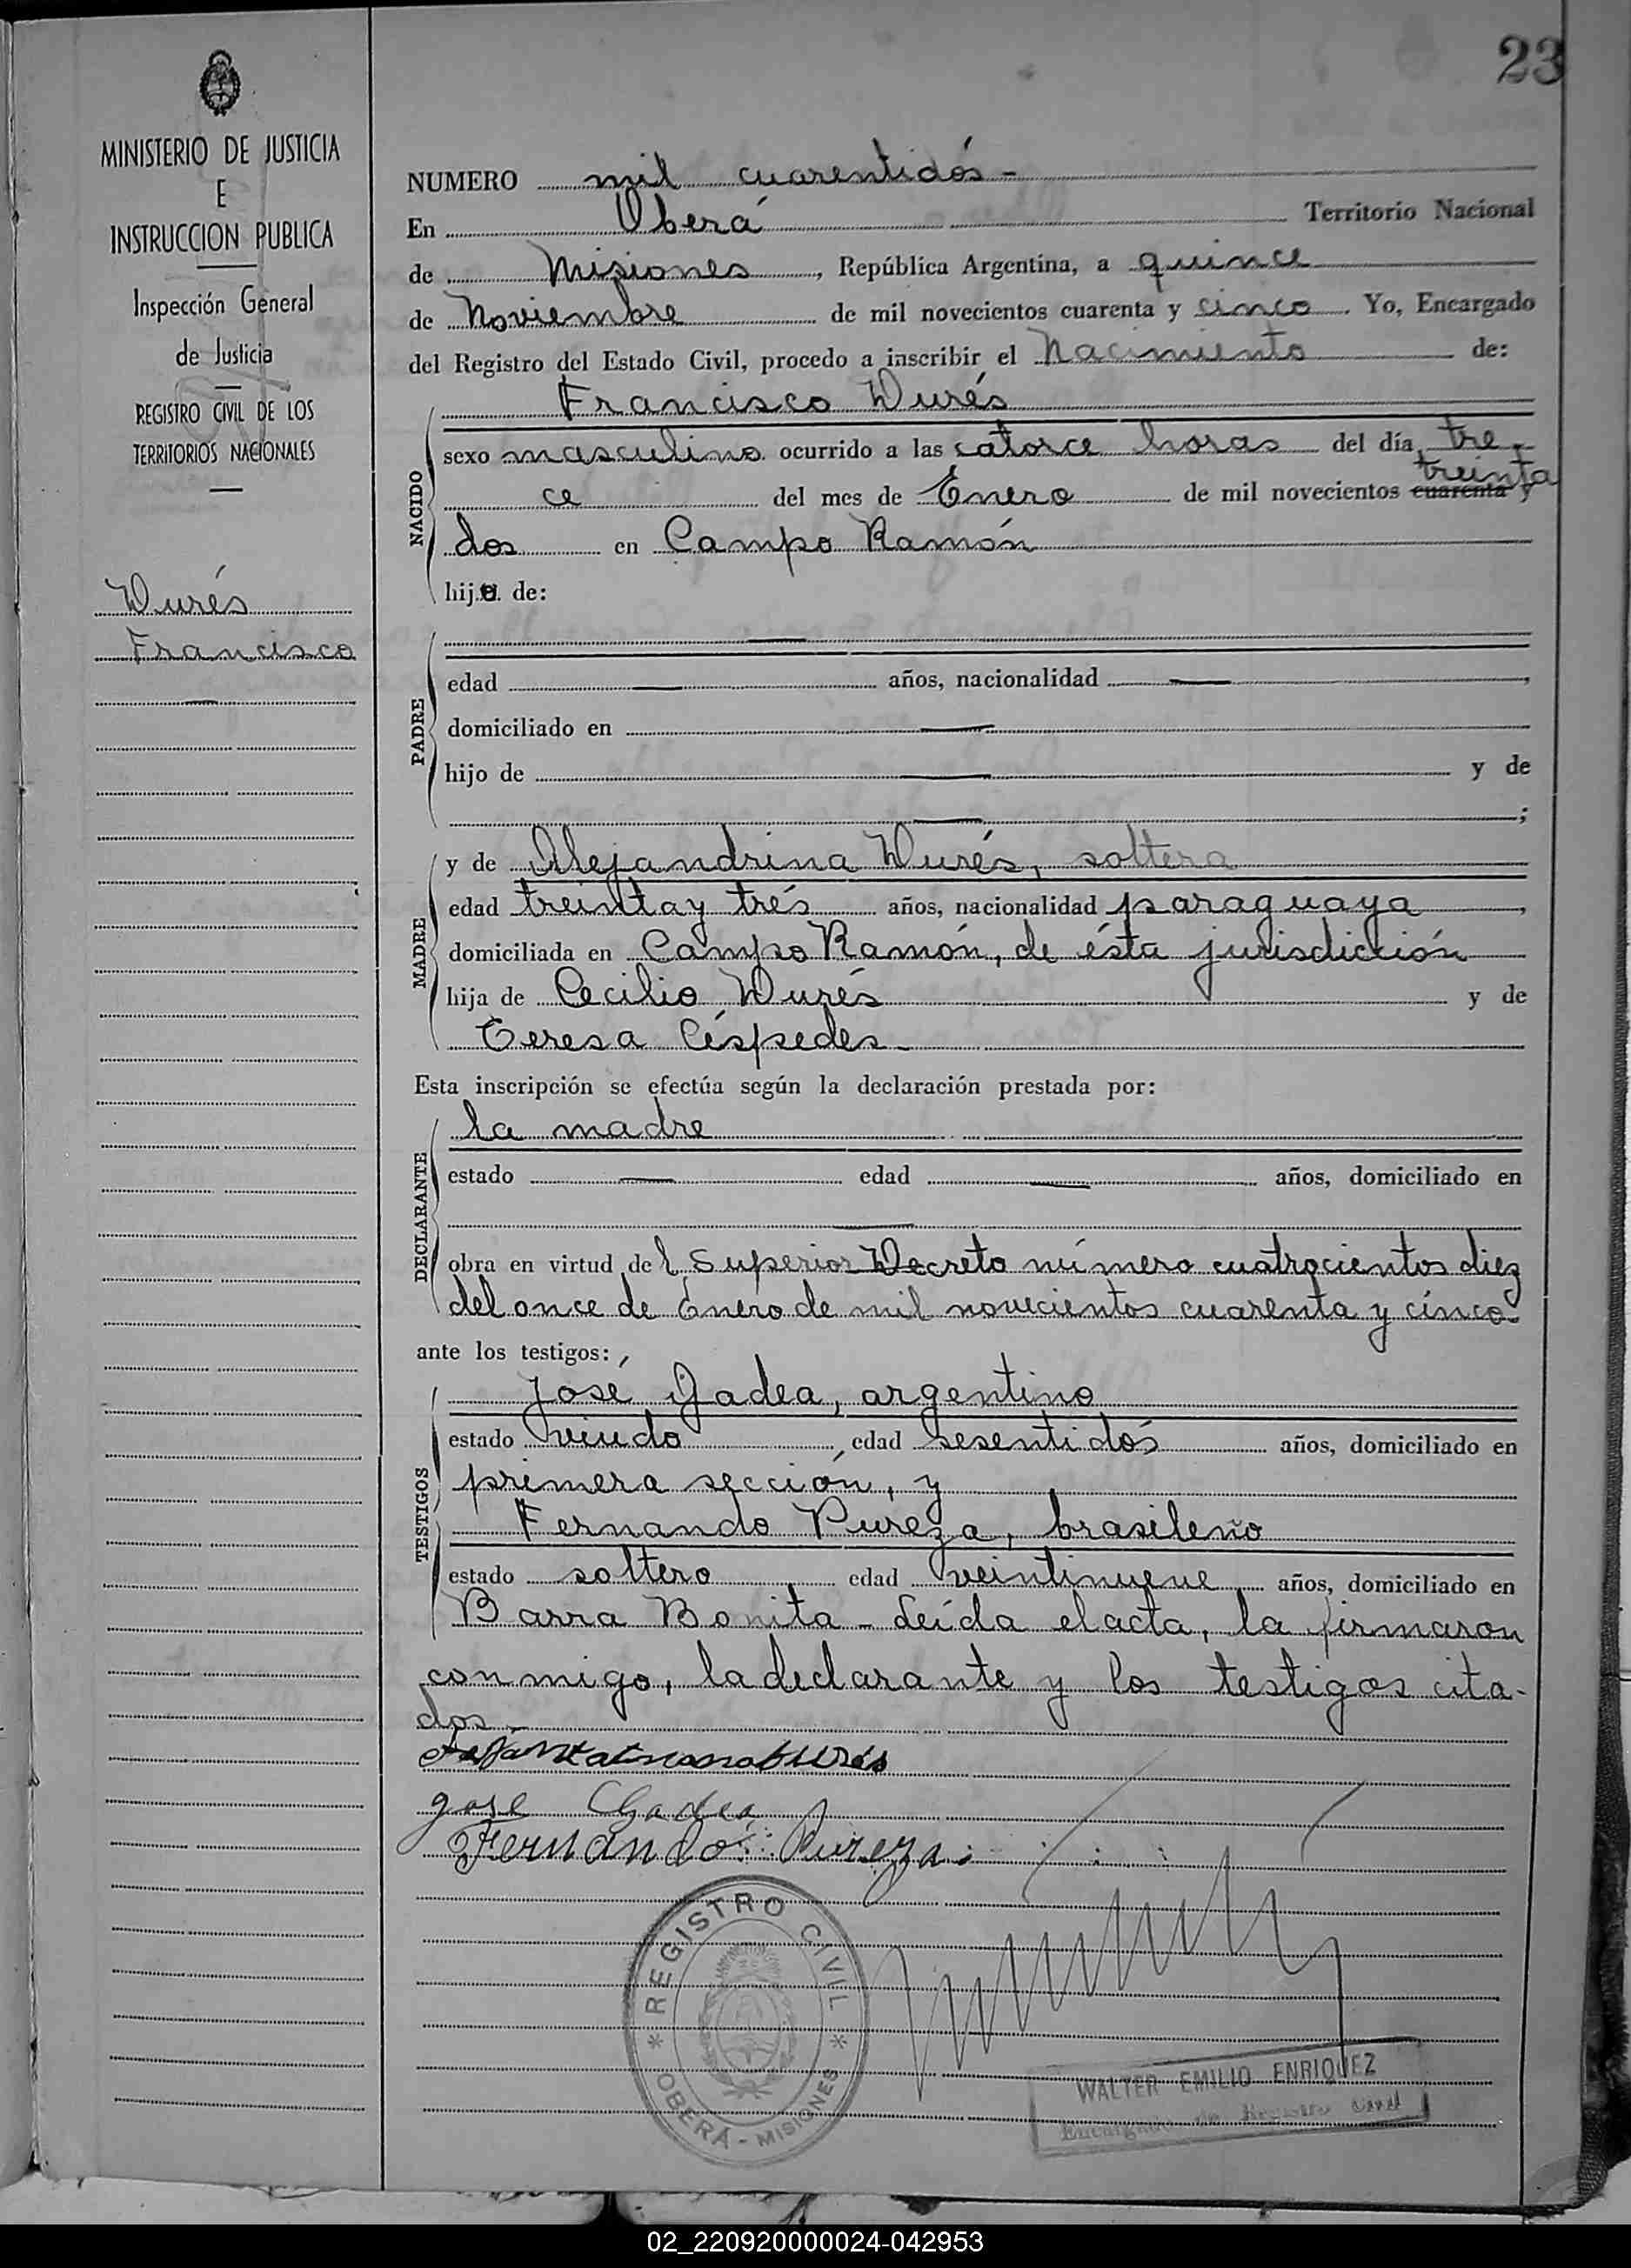 23
MINISTERIO DE JUSTICIA
E
INSTRUCCION PUBLICA
Inspección General
de Justicia
REGISTRO CIVIL DE LOS
TERRITORIOS NACIONALES
Durés
Francisco
NUMERO mil cuarentidós -
En Oberá Territorio Nacional
de Misiones, República Argentina, a quince
de Noviembre de mil novecientos cuarenta y cinco. Yo, Encargado
del Registro del Estado Civil, procedo a inscribir el Nacimiento de:
Francisco Durés
NACIDO
sexo masculino ocurrido a las catorce horas del día tre-
treinta
ce del mes de Enero de mil novecientos cuarenta y
dos en Campo Ramón
hijo de:
PADRE
edad — años, nacionalidad —,
domiciliado en —
hijo de — y de
—;
MADRE
y de Alejandrina Durés, soltera
edad treinta y trés años, nacionalidad paraguaya,
domiciliada en Campo Ramón, de ésta jurisdicción
hija de Cecilio Durés y de
Teresa Céspedes-
Esta inscripción se efectúa según la declaración prestada por:
DECLARANTE
la madre
estado — edad — años, domiciliado en
—
obra en virtud del Superior Decreto número cuatrocientos diez
del once de Enero de mil novecientos cuarenta y cinco-
ante los testigos:
TESTIGOS
José Gadea, argentino
estado viudo, edad sesentidós años, domiciliado en
primera sección, y
Fernando Pureza, brasileño
estado soltero edad veintinueve años, domiciliado en
Barra Bonita - Leída el acta, la firmaron
conmigo, la declarante y los testigos cita-
dos-
José Gadea
Fernando Pureza
REGISTRO CIVIL
OBERÁ - MISIONES
WALTER EMILIO ENRIQUEZ
Encargado de Registro Civil
02_220920000024-042953